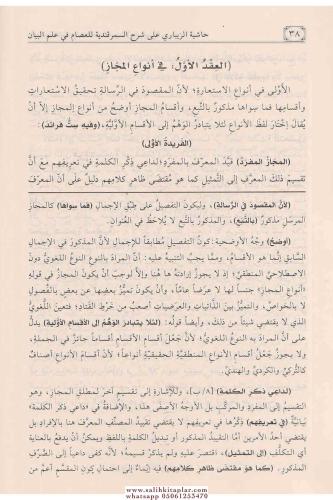 ٣٨ حاشية الزيباري على شرح السمرقندية للعصام في علم البيان
(العِقْدُ الأوَّلُ: في أنواعِ المَجازِ)
الأَوْلى في أنواعِ الاستعارةِ؛ لأنَّ المقصودَ في الرسالةِ تحقيقُ الاستعاراتِ
وأقسامِها فما سواها مذكورٌ بالتَّبعِ، وأقسامُ المجازِ أوضحُ من أنواعِ المجازِ إلَّا أنْ
يُقالَ اختَارَ لفظَ الأنواعِ لئلا يتبادرَ الوَهْمُ إلى الأقسامِ الأوّليَّةِ، (وفيه ستُّ فرائدَ):
(الفريدةُ الأولى)
(المَجازُ المفرَدُ) قيَّدَ المعرَّفَ بالمفرَدِ؛ لداعي ذِكْرِ الكلمةِ في تعريفِهم مع أنَّ
تقسيمَ ذلك المعرَّفِ إلى التَّمثيلِ كما هو مُقتضَى ظاهرِ كلامِهم دليلٌ على أنَّ المعرَّفَ
(لأنَّ المقصودَ في الرِّسالةِ)، وليكونَ التفصيلُ على طِبْقِ الإجمالِ (فما سواها) كالمجازِ
المرسَلِ مذكورٌ (بالتَّبعِ)، والمذكورُ بالتَّبعِ لا يُلاحَظُ في العُنوانِ.
(أوضحُ) وجهُ الأوضحيةِ: كونُ التفصيلِ مُطابقاً للإجمالِ لأنَّ المذكورَ في الإجمالِ
السابقِ إنَّما هو الأقسامُ، وممَّا يجبُ التنبيهُ عليه: أنَّ المرادَ بالنوعِ النوعُ اللغويُّ دونَ
الاصطلاحيِّ المنطقيِّ؛ إذ لا يجوزُ إرادتُهُ هنا وإلَّا لوجبَ أنْ يكونَ المَجازُ في قولِهِ
«أنواعِ المجازِ» جنساً لها لا عرَضاً عامّاً، وأنْ يكونَ تميُّزُ بعضِها عن بعضٍ بالفُصولِ
لا بالخواصِّ، والتميُّزُ بينَ الذاتياتِ والعرَضياتِ أصعبُ من خَرْطِ القَتادِ؛ فتعينَ اللغويُّ
الذي لا يقتضي شيئاً من ذلك، وأيضاً قولُه: (لئلا يتبادرَ الوَهْمُ إلى الأقسامِ الأوّليَّةِ) يدلُّ
على أنَّ المرادَ به النوعُ اللغويُّ؛ لأنَّ جَعْلَ أقسامِ الأقسامِ أقساماً جائزٌ في الجملةِ،
ولا يجوزُ جَعْلُ أقسامِ الأنواعِ المنطقيَّةِ الحقيقيَّةِ أنواعاً؛ لأنَّ أقسامَ الأنواعِ أصنافٌ
كالتُّركيِّ والكُرديِّ والهنديِّ.
(لداعي ذِكْرِ الكلمةِ) [٨/ب]، وللإشارةِ إلى تقسيمٍ آخرَ لمطلَقِ المجازِ، وهو
التقسيمُ إلى المفردِ والمركَّبِ بل الأوجَهُ الاكتفاءُ هذا، والإضافةُ في «داعي ذكرِ الكلمةِ»
بيانيَّةٌ (في تعريفِهم) ذِكْرُها في تعريفِهم لا يقتضي تقييدَ المصنِّفِ المعرَّفَ هنا بالإفرادِ بل
يقتضي أحدَ الأمرينِ أمَّا التقييدُ المذكورُ أو تبديلُ الكلمةِ باللفظِ ويمكنُ أنْ يدفعَ بالعنايةِ
أي التكلُّفِ (إلى التمثيلِ)، اقتصرَ عليه ولم يذكرْ قسيمَهُ؛ لأنَّه كفى داعياً إلى الصَّرْفِ
المذكورِ. (كما هو مقتضَى ظاهرِ كلامِهم) فيه إيماءٌ إلى احتمالِ كونِ المقسَمِ أعمَّ من
www.salihkitaplar.com
whatsapp 05061253470